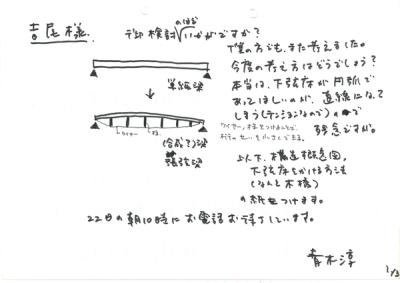 吉尾様.
御検討のほどいかがですか?
僕の方でも、また考えました。
今度の考え方はどうでしょう?
本当は、下弦材が円弧で
あってほしいのが、直線になって
しまう(テンションなので)ので
残念ですが。
単純梁
(合成?)梁
張弦梁
ワイヤー
上下、構造概念図、
下弦材をかける方法
(なんと木橋)
の紙をつけます。
22日の朝10時にお電話お待ちしています。
青木淳
1/3